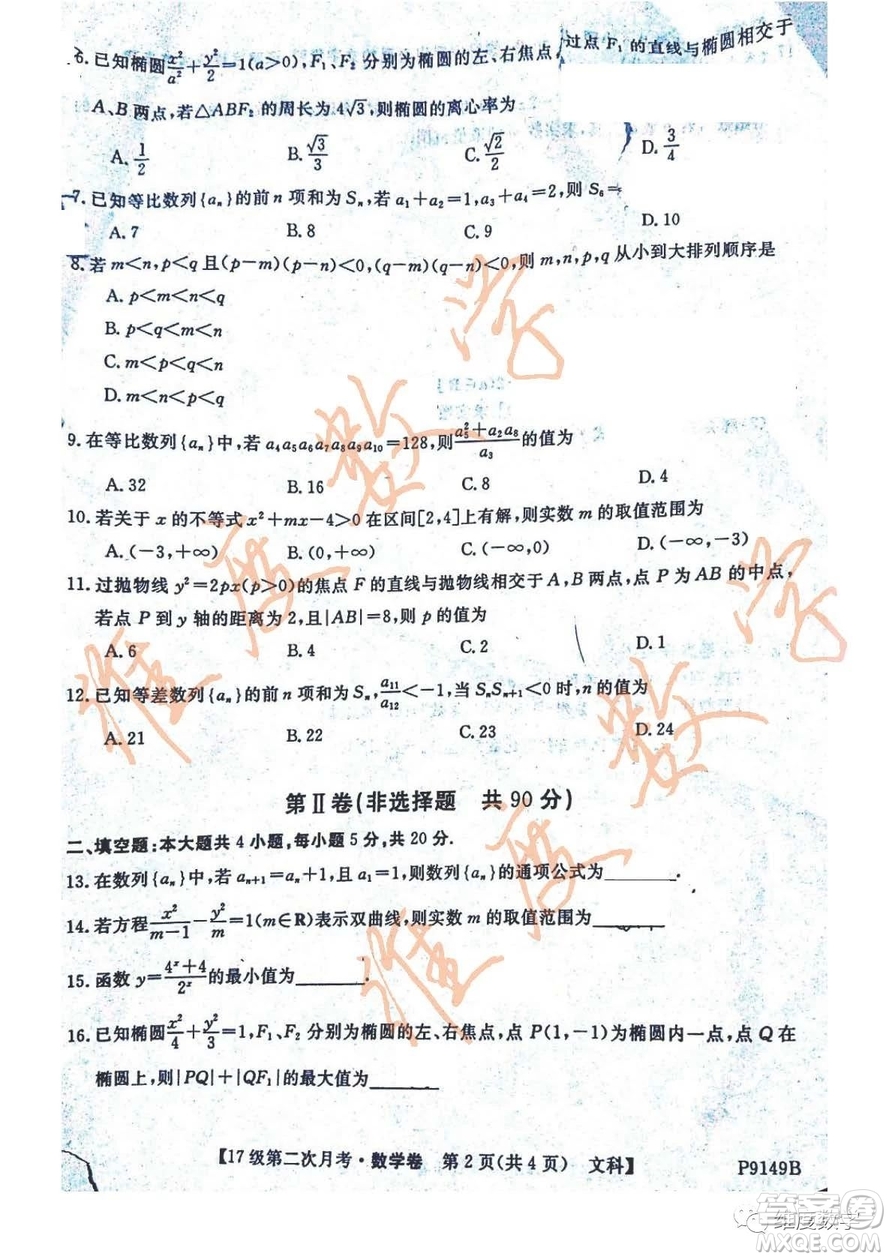 6. 已知椭圆x²/a²+y²/2=1(a>0),F₁、F₂ 分别为椭圆的左、右焦点,过点 F₁ 的直线与椭圆相交于
A、B 两点,若△ABF₂ 的周长为 4√3,则椭圆的离心率为
A. 1/2 B. √3/3 C. √2/2 D. 3/4
7. 已知等比数列{aₙ}的前 n 项和为 Sₙ,若 a₁+a₂=1,a₃+a₄=2,则 S₆=
A. 7 B. 8 C. 9 D. 10
8. 若 m<n,p<q 且(p-m)(p-n)<0,(q-m)(q-n)<0,则 m,n,p,q 从小到大排列顺序是
A. p<m<n<q
B. p<q<m<n
C. m<p<q<n
D. m<n<p<q
9. 在等比数列{aₙ}中,若 a₄a₅a₆a₇a₈a₉a₁₀=128,则(a₅²+a₂a₈)/a₃的值为
A. 32 B. 16 C. 8 D. 4
10. 若关于 x 的不等式 x²+mx-4>0 在区间[2,4]上有解,则实数 m 的取值范围为
A. (-3,+∞) B. (0,+∞) C. (-∞,0) D. (-∞,-3)
11. 过抛物线 y²=2px(p>0)的焦点 F 的直线与抛物线相交于 A、B 两点,点 P 为 AB 的中点,
若点 P 到 y 轴的距离为 2,且|AB|=8,则 p 的值为
A. 6 B. 4 C. 2 D. 1
12. 已知等差数列{aₙ}的前 n 项和为 Sₙ,a₁₁/a₁₂<-1,当 SₙSₙ₊₁<0 时,n 的值为
A. 21 B. 22 C. 23 D. 24
第Ⅱ卷(非选择题 共 90 分)
二、填空题:本大题共 4 小题,每小题 5 分,共 20 分.
13. 在数列{aₙ}中,若 aₙ₊₁=aₙ+1,且 a₁=1,则数列{aₙ}的通项公式为________
14. 若方程x²/(m-1)-y²/m=1(m∈R)表示双曲线,则实数 m 的取值范围为________
15. 函数 y=(4ˣ+4)/2ˣ的最小值为________.
16. 已知椭圆x²/4+y²/3=1,F₁、F₂ 分别为椭圆的左、右焦点,点 P(1,-1)为椭圆内一点,点 Q 在
椭圆上,则|PQ|+|QF₁|的最大值为________
【17 级第二次月考·数学卷 第 2 页(共 4 页) 文科】 P9149B
维度数学
维度数学
维度数学
答案圈
MXQE.COM